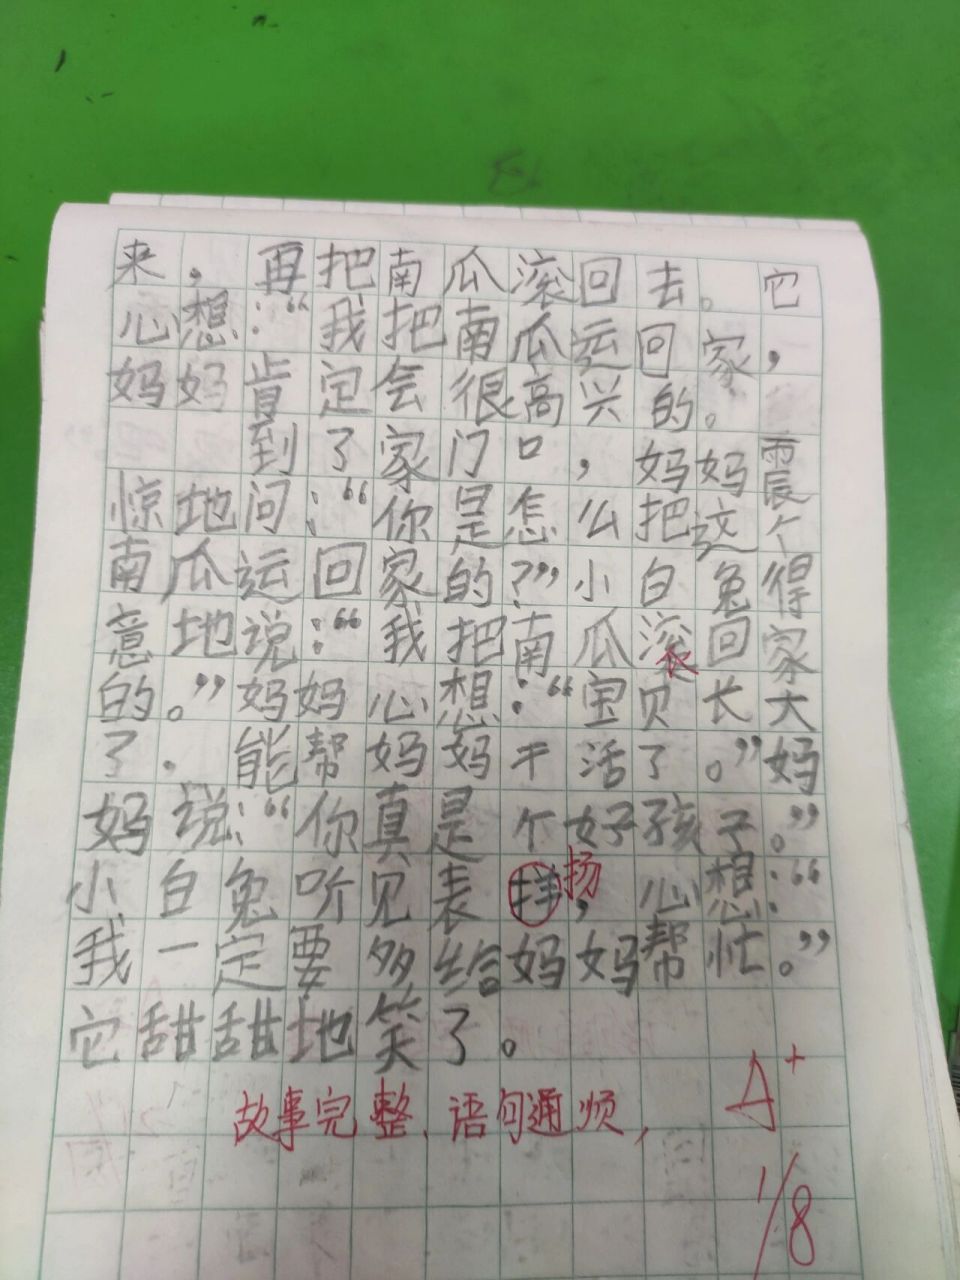 来，再把南瓜滚回去。它
心想：“我把南瓜运回家，
妈妈肯定会很高兴的。
到了家门口，妈妈震
惊地问：“你是怎么把这个
南瓜运回家的？”小白兔得
意地说：“我把南瓜滚回家
的。”妈妈心想：“宝贝长大
了．能帮妈妈干活了。”妈
妈说：“你真是个好孩子。”
小白兔听见表拌扬，心想：“
我一定要多给妈妈帮忙。”
它甜甜地笑了。
故事完整、语句通顺，
A+
1/8